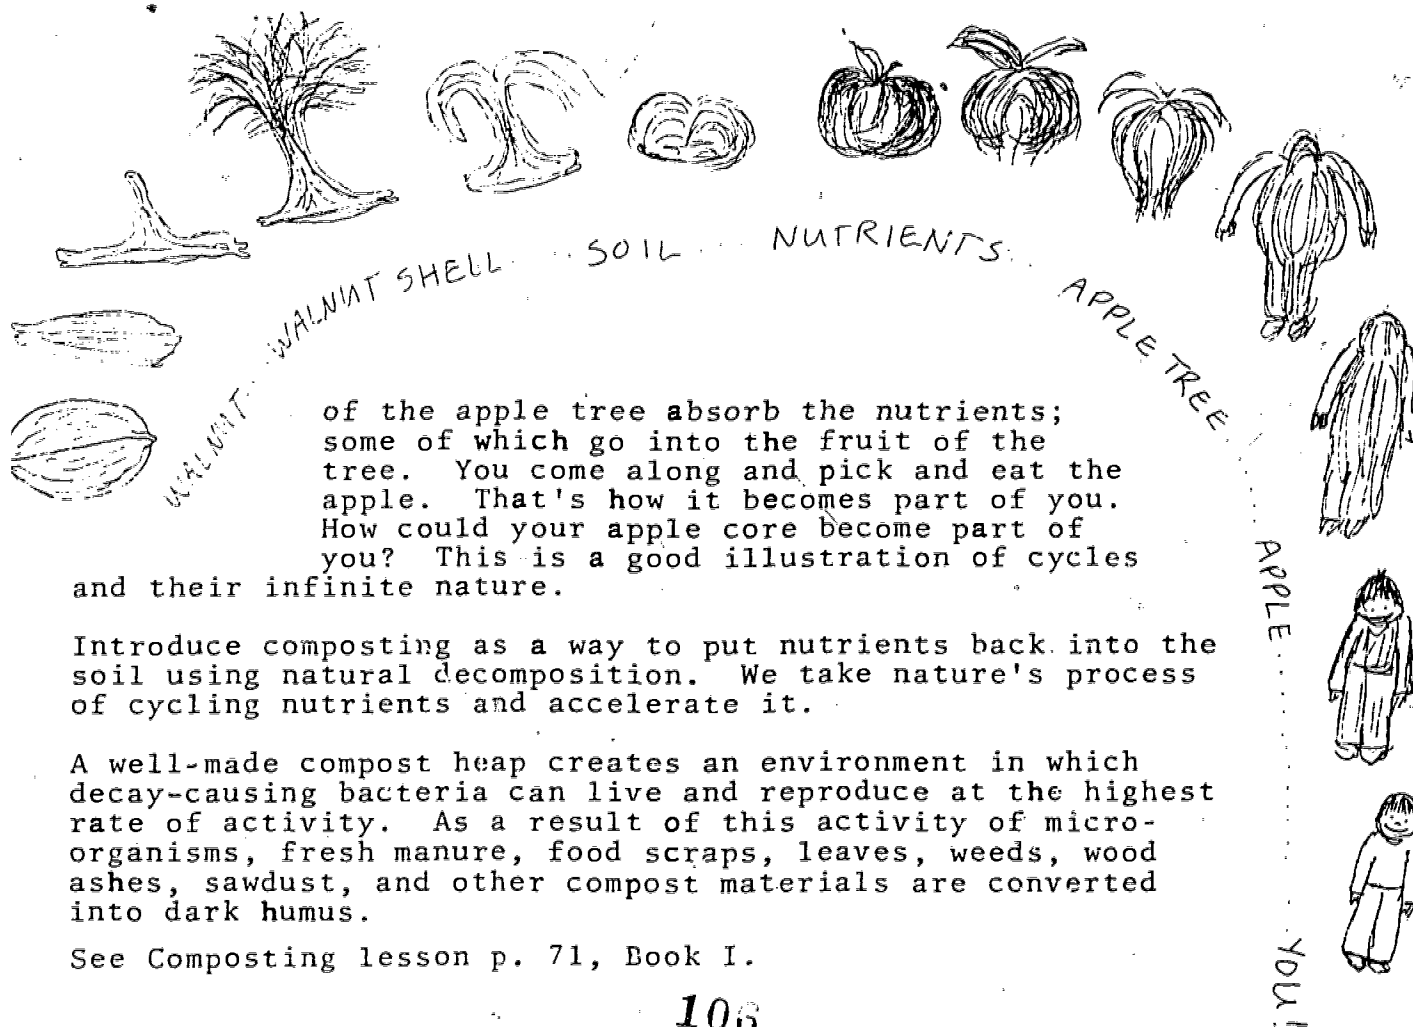 WALNUT... WALNUT SHELL... SOIL... NUTRIENTS... APPLE TREE... APPLE... YOU!
of the apple tree absorb the nutrients;
some of which go into the fruit of the
tree. You come along and pick and eat the
apple. That's how it becomes part of you.
How could your apple core become part of
you? This is a good illustration of cycles
and their infinite nature.
Introduce composting as a way to put nutrients back into the
soil using natural decomposition. We take nature's process
of cycling nutrients and accelerate it.
A well-made compost heap creates an environment in which
decay-causing bacteria can live and reproduce at the highest
rate of activity. As a result of this activity of micro-
organisms, fresh manure, food scraps, leaves, weeds, wood
ashes, sawdust, and other compost materials are converted
into dark humus.
See Composting lesson p. 71, Book I.